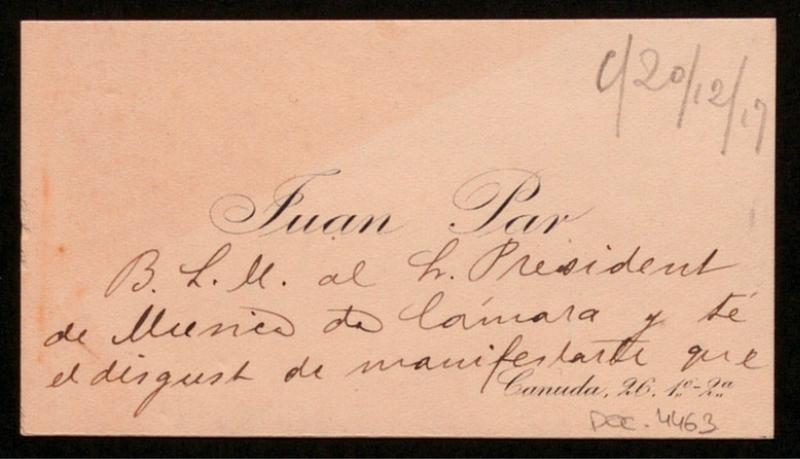 C/20/12/17
Juan Par
B. L. M. al S. President
de Musica da Cámara y té
el disgust de manifestarte que
Canuda, 26. 1º-2ª
DOC. 4463